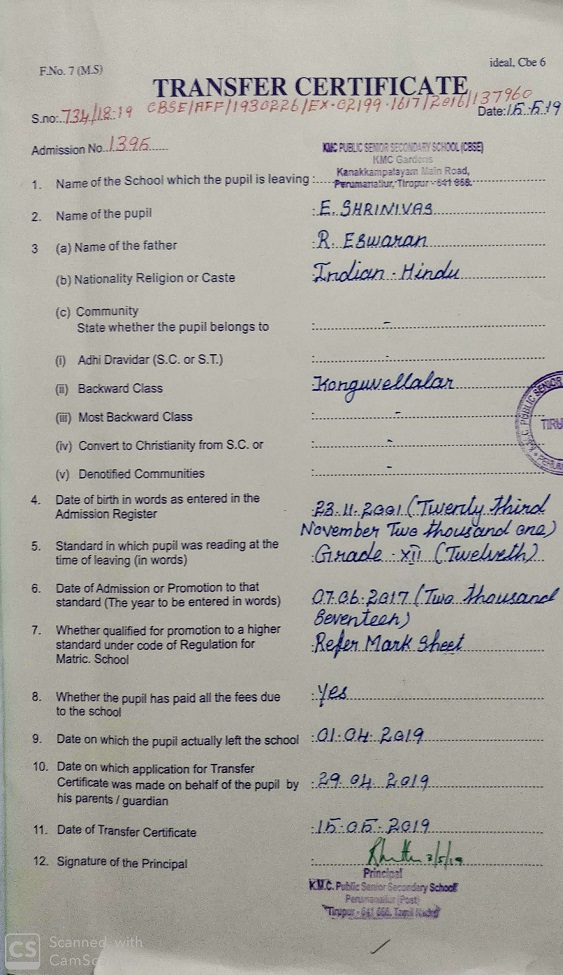 F.No. 7 (M.S)
ideal, Cbe 6
TRANSFER CERTIFICATE
S.no:.734/18-19 CBSE/AFF/1930226/EX-02199-1617/2016/137960
Date:15.5.19
Admission No. 1395
KMC PUBLIC SENIOR SECONDARY SCHOOL (CBSE)
KMC Gardens
Kanakkampalayam Main Road,
Perumanallur, Tirupur - 641 666.
1. Name of the School which the pupil is leaving :
2. Name of the pupil : E. SHRINIVAS
3 (a) Name of the father : R. Eswaran
(b) Nationality Religion or Caste Indian - Hindu
(c) Community
State whether the pupil belongs to : -
(i) Adhi Dravidar (S.C. or S.T.) : -
(ii) Backward Class Konguvellalar
(iii) Most Backward Class : -
(iv) Convert to Christianity from S.C. or : -
(v) Denotified Communities : -
4. Date of birth in words as entered in the : 23.11.2001 (Twenty third
Admission Register November Two thousand one)
5. Standard in which pupil was reading at the : Grade - XII (Twelveth)
time of leaving (in words)
6. Date of Admission or Promotion to that : 07.06.2017 (Two thousand
standard (The year to be entered in words) Seventeen)
7. Whether qualified for promotion to a higher : Refer Mark Sheet
standard under code of Regulation for
Matric. School
8. Whether the pupil has paid all the fees due : Yes
to the school
9. Date on which the pupil actually left the school : 01.04.2019
10. Date on which application for Transfer
Certificate was made on behalf of the pupil by : 29.04.2019
his parents / guardian
11. Date of Transfer Certificate : 15.05.2019
12. Signature of the Principal :
Principal
K.M.C. Public Senior Secondary School
Perumanallur (Post)
Tirupur - 641 666, Tamil Nadu
CS Scanned with